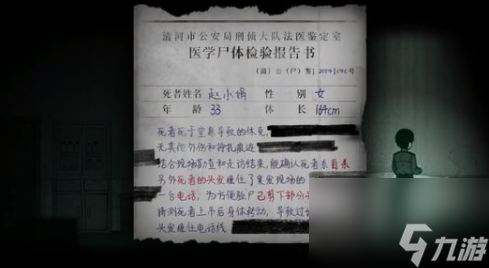 清河市公安局刑侦大队法医鉴定室
医学尸体检验报告书
死者姓名 赵小娟 性别 女
年龄 33 体长 164cm
死者死于窒息导致的休克,
无其他外伤和挣扎痕迹
结合现场勘查和走访结果,能确认死者系自杀
另外死者的头发缠住了案发现场的
一台电话,为方便验尸已剪下部分头
猜测死者上吊后身体转动,导致过
头发缠住电话线
九游